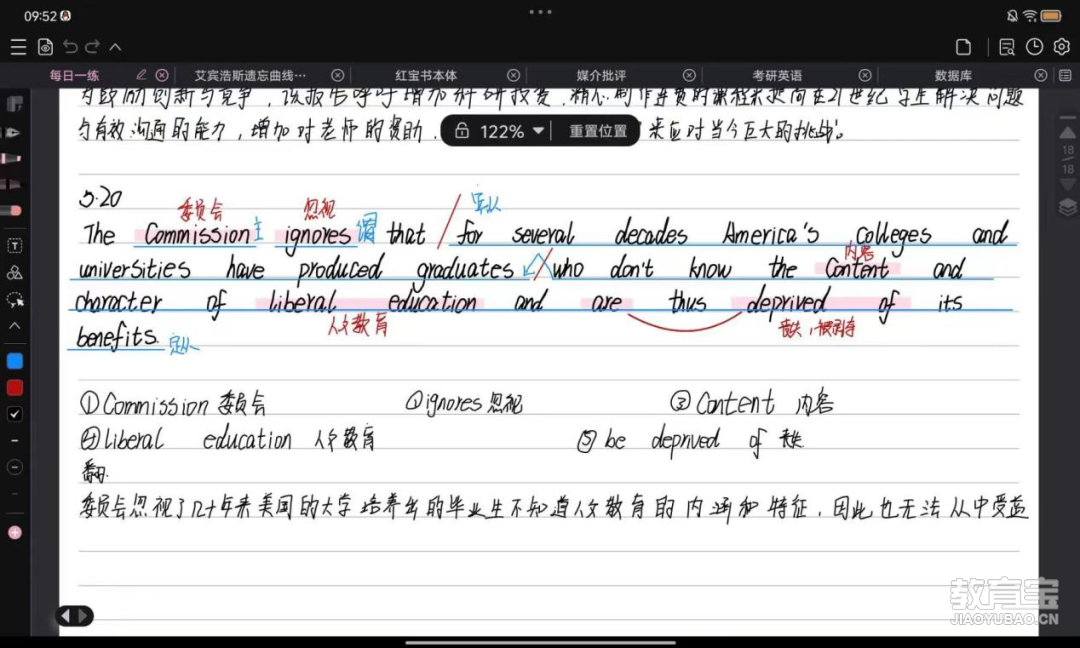 09:52
每日一练 艾宾浩斯遗忘曲线… 红宝书本体 媒介批评 考研英语 数据库
为鼓励创新与竞争，该报告呼吁增加科研投资，精心制作连贯的课程来提高在21世纪学生解决问题
与有效沟通的能力，增加对老师的资助， 来应对当今巨大的挑战。
122% 重置位置
18
18
5.20
委员会 忽视 宾从
The Commission 主 ignores 谓 that for several decades America's colleges and
内容
universities have produced graduates who don't know the Content and
character of liberal education and are thus deprived of its
人文教育 丧失，被剥夺
benefits. 定从
①Commission 委员会 ②ignores 忽视 ③Content 内容
④Liberal education 人文教育 ⑤be deprived of 丧失
翻.
委员会忽视了几十年来美国的大学培养出的毕业生不知道人文教育的内涵和特征，因此也无法从中受益
教育宝
JIAOYUBAO.CN